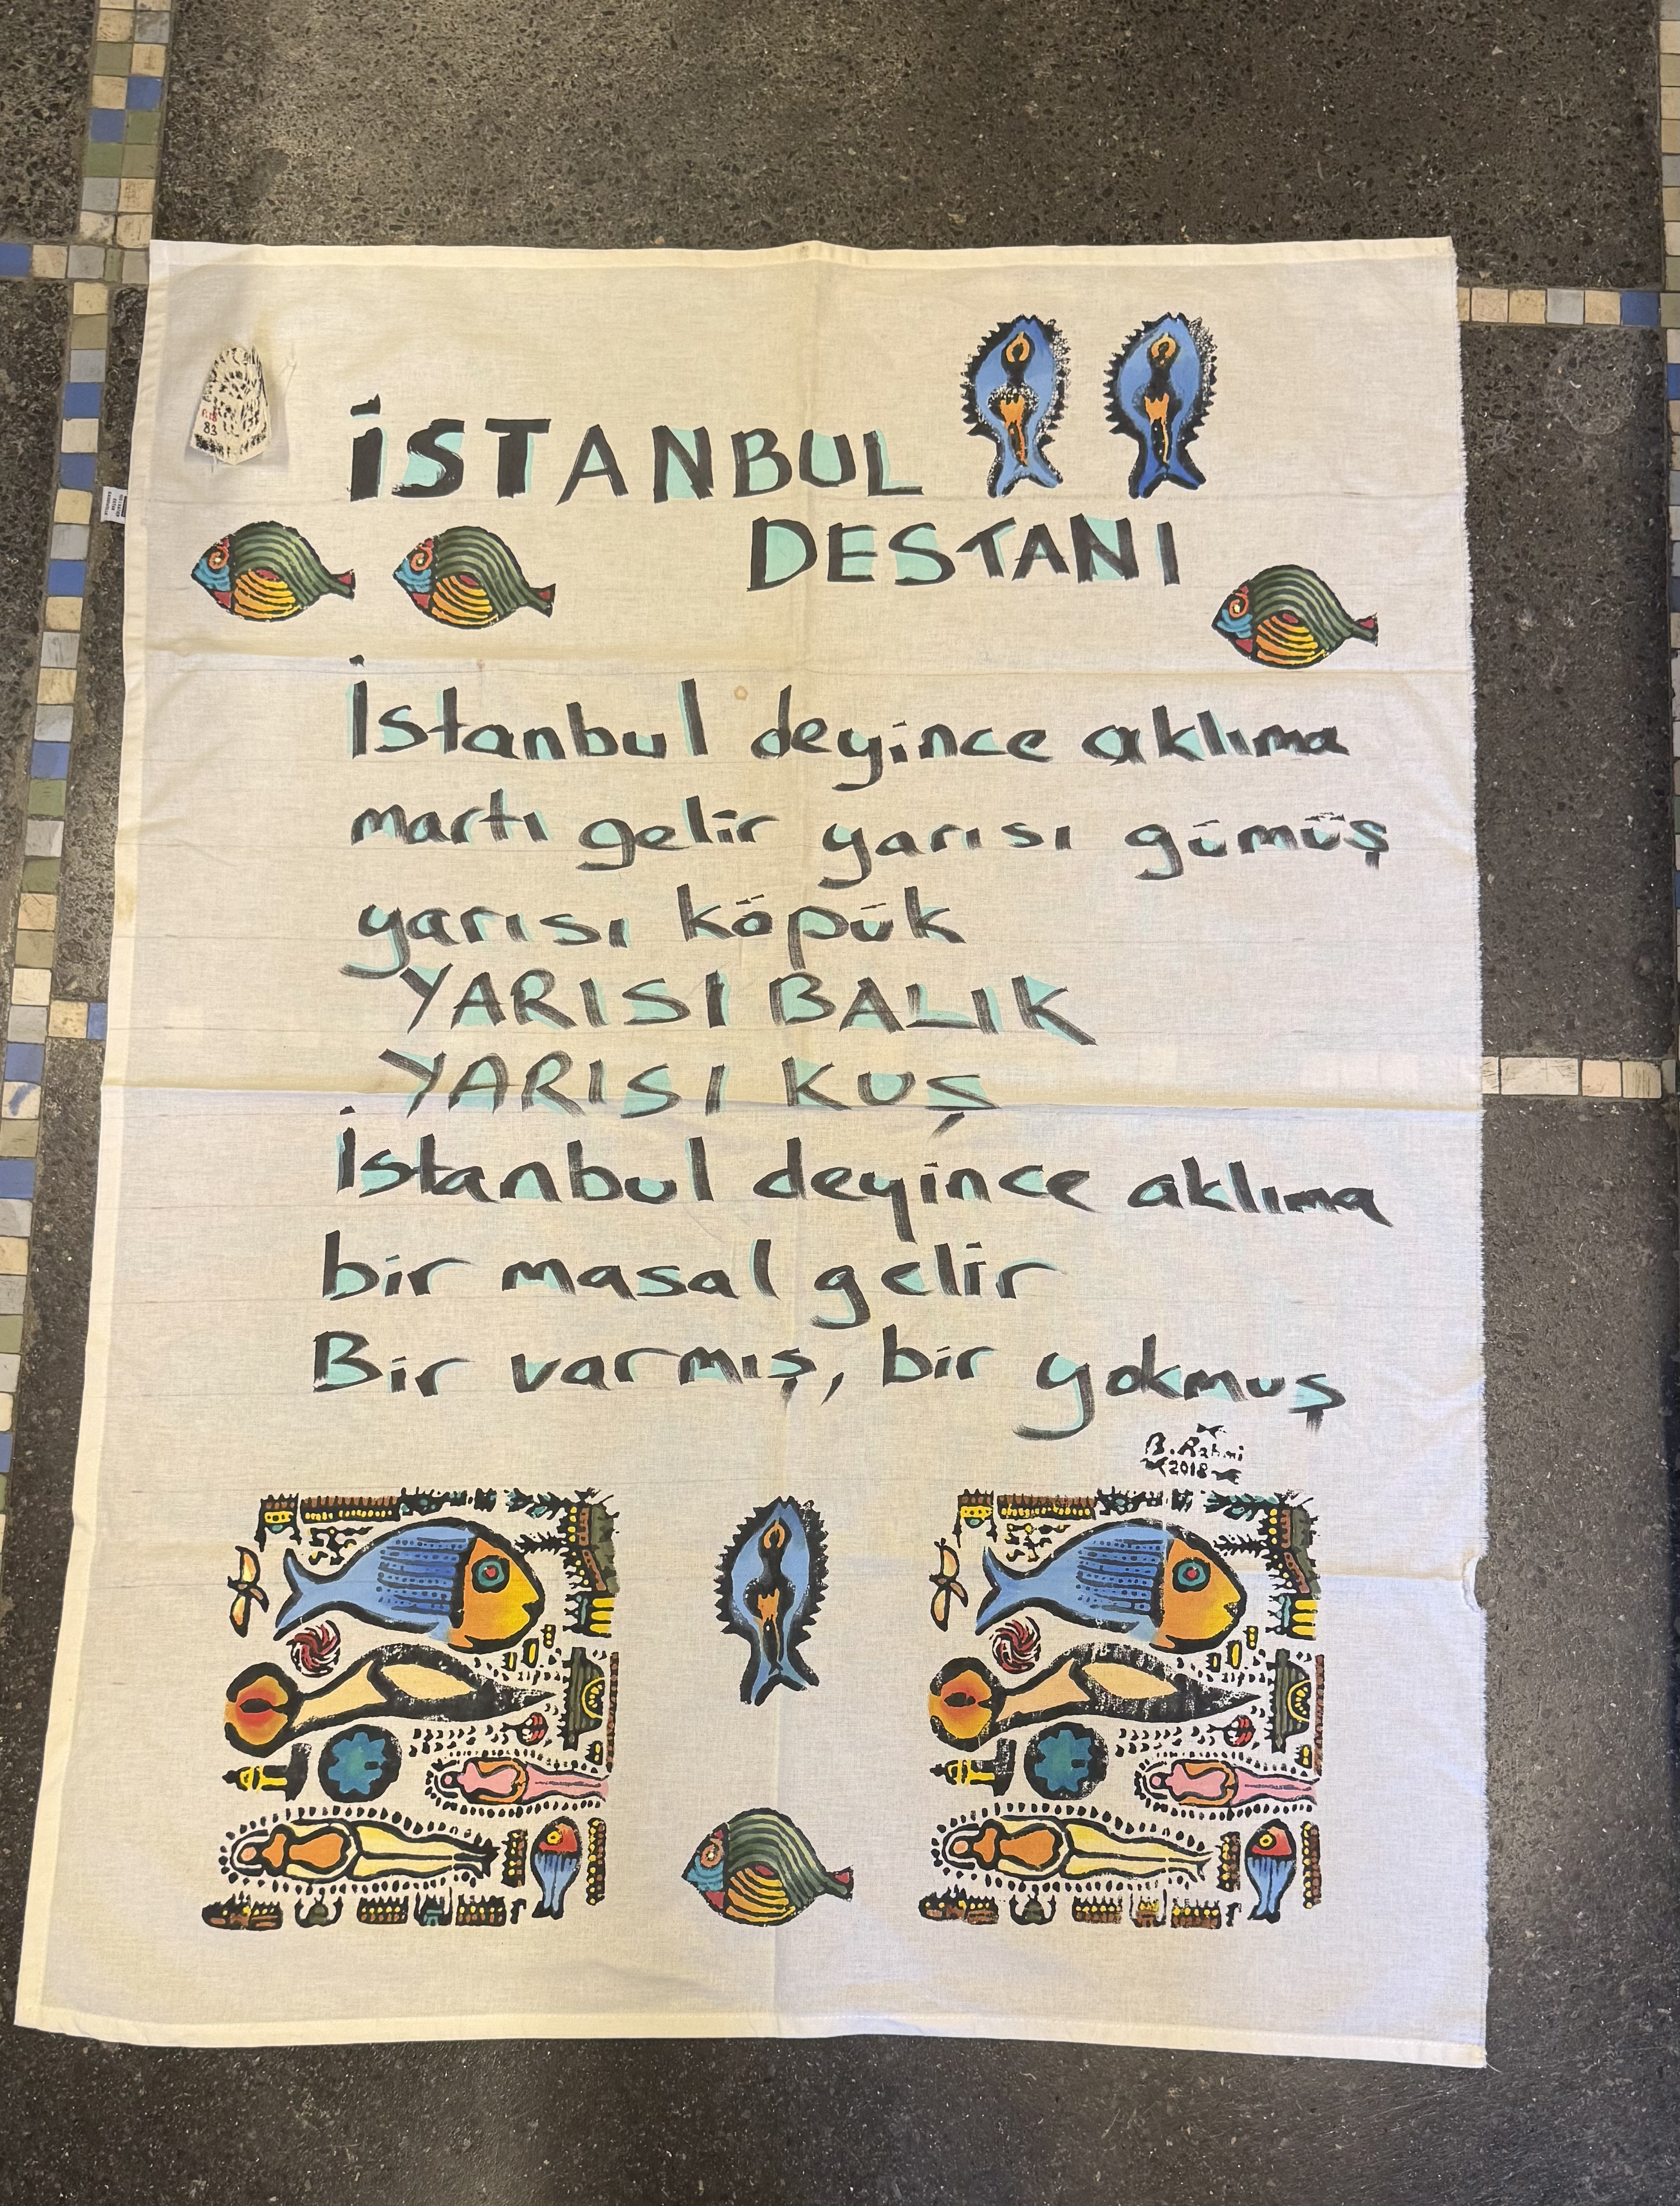 İSTANBUL
DESTANI
İstanbul deyince aklıma
martı gelir yarısı gümüş
yarısı köpük
YARISI BALIK
YARISI KUŞ
İstanbul deyince aklıma
bir masal gelir
Bir varmış, bir yokmuş
B. Rahmi
2018
83